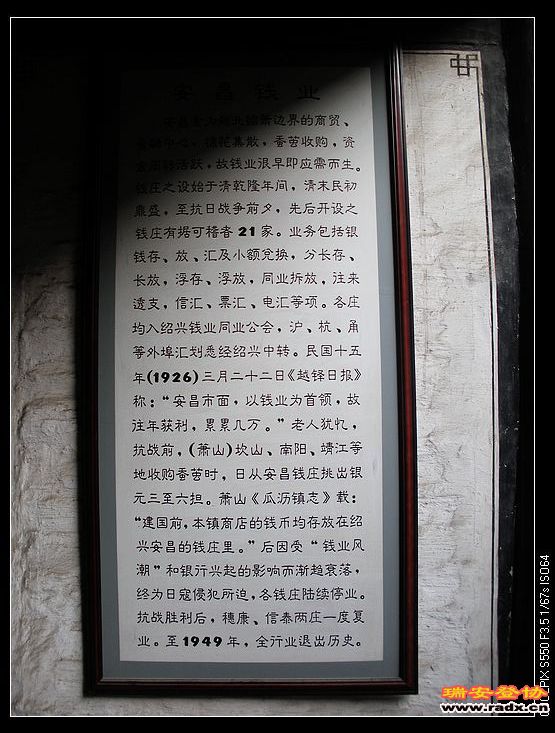 安昌钱业
安昌素为浙北绍萧边界的商贸、
金融中心，棉花集散，香萝收购，资
金周转活跃，故钱业很早即应需而生。
钱庄之设始于清乾隆年间，清末民初
鼎盛，至抗日战争前夕，先后开设之
钱庄有据可稽者21家。业务包括银
钱存、放、汇及小额兑换，分长存、
长放，浮存、浮放，同业拆放，往来
透支，信汇、票汇、电汇等项。各庄
均入绍兴钱业同业公会，沪、杭、甬
等外埠汇划悉经绍兴中转。民国十五
年(1926)三月二十二日《越铎日报》
称：“安昌市面，以钱业为首领，故
往年获利，累累几万。”老人犹忆，
抗战前，(萧山)坎山、南阳、靖江等
地收购香萝时，日从安昌钱庄挑出银
元三至六担。萧山《瓜沥镇志》载：
“建国前，本镇商店的钱币均存放在绍
兴安昌的钱庄里。”后因受“钱业风
潮”和银行兴起的影响而渐趋衰落，
终为日寇侵犯所迫，各钱庄陆续停业。
抗战胜利后，穗康、信泰两庄一度复
业。至1949年，全行业退出历史。
PIX S550 F3.5 1/67s ISO64
瑞安登协
www.radx.cn